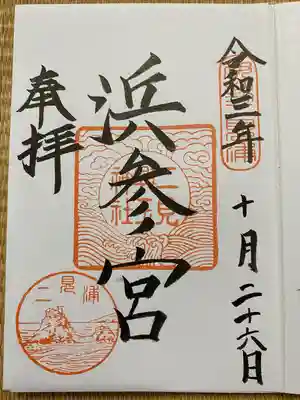 令和三年
十月二十六日
浜参宮
奉拝
二見興玉神社
二見浦